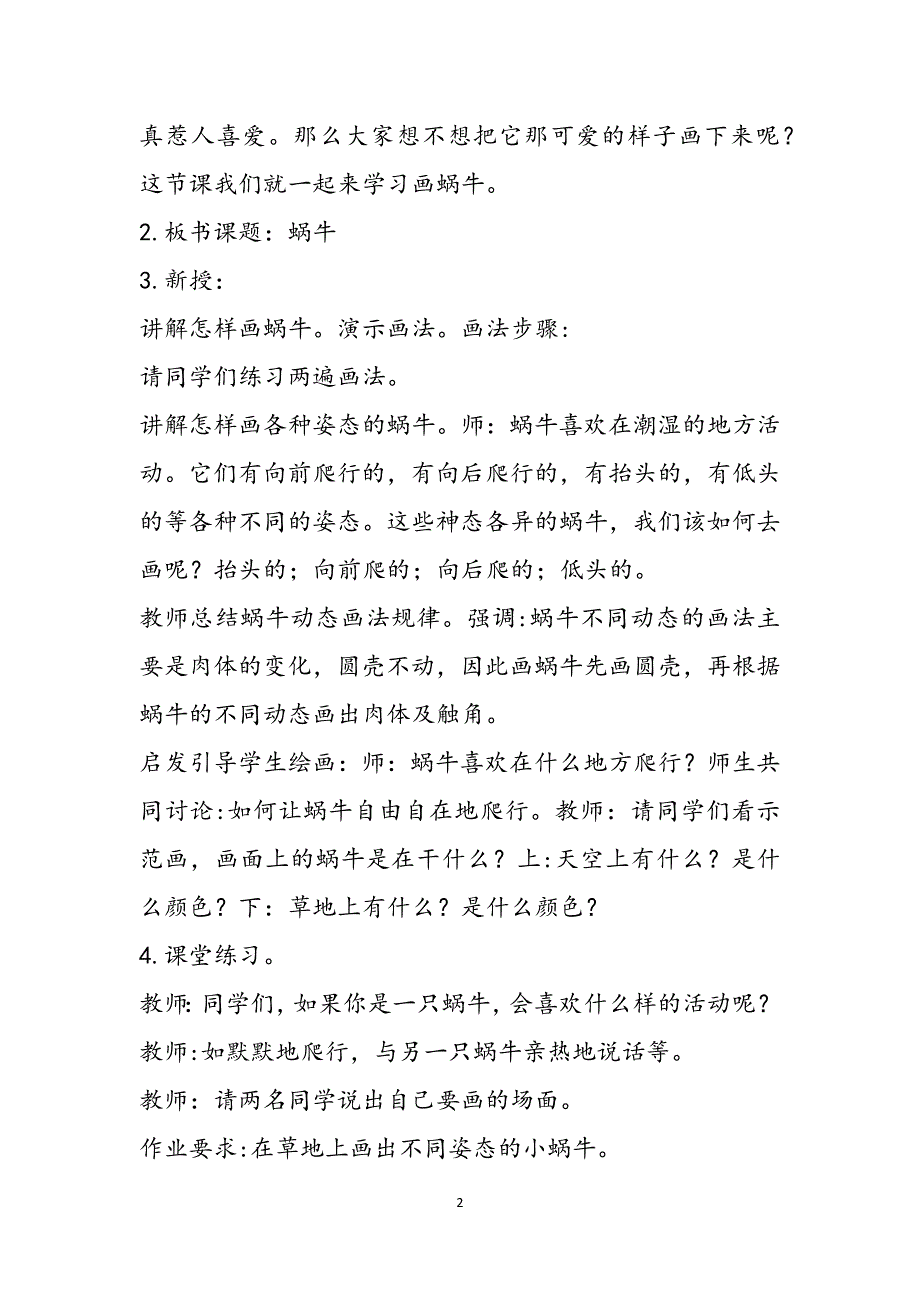 真惹人喜爱。那么大家想不想把它那可爱的样子画下来呢？
这节课我们就一起来学习画蜗牛。
2.板书课题：蜗牛
3.新授：
讲解怎样画蜗牛。演示画法。画法步骤:
请同学们练习两遍画法。
讲解怎样画各种姿态的蜗牛。师：蜗牛喜欢在潮湿的地方活
动。它们有向前爬行的，有向后爬行的，有抬头的，有低头
的等各种不同的姿态。这些神态各异的蜗牛，我们该如何去
画呢？抬头的；向前爬的；向后爬的；低头的。
教师总结蜗牛动态画法规律。强调:蜗牛不同动态的画法主
要是肉体的变化，圆壳不动，因此画蜗牛先画圆壳，再根据
蜗牛的不同动态画出肉体及触角。
启发引导学生绘画：师：蜗牛喜欢在什么地方爬行？师生共
同讨论:如何让蜗牛自由自在地爬行。教师：请同学们看示
范画，画面上的蜗牛是在干什么？上:天空上有什么？是什
么颜色？下：草地上有什么？是什么颜色？
4.课堂练习。
教师:同学们,如果你是一只蜗牛,会喜欢什么样的活动呢？
教师:如默默地爬行，与另一只蜗牛亲热地说话等。
教师：请两名同学说出自己要画的场面。
作业要求:在草地上画出不同姿态的小蜗牛。
2